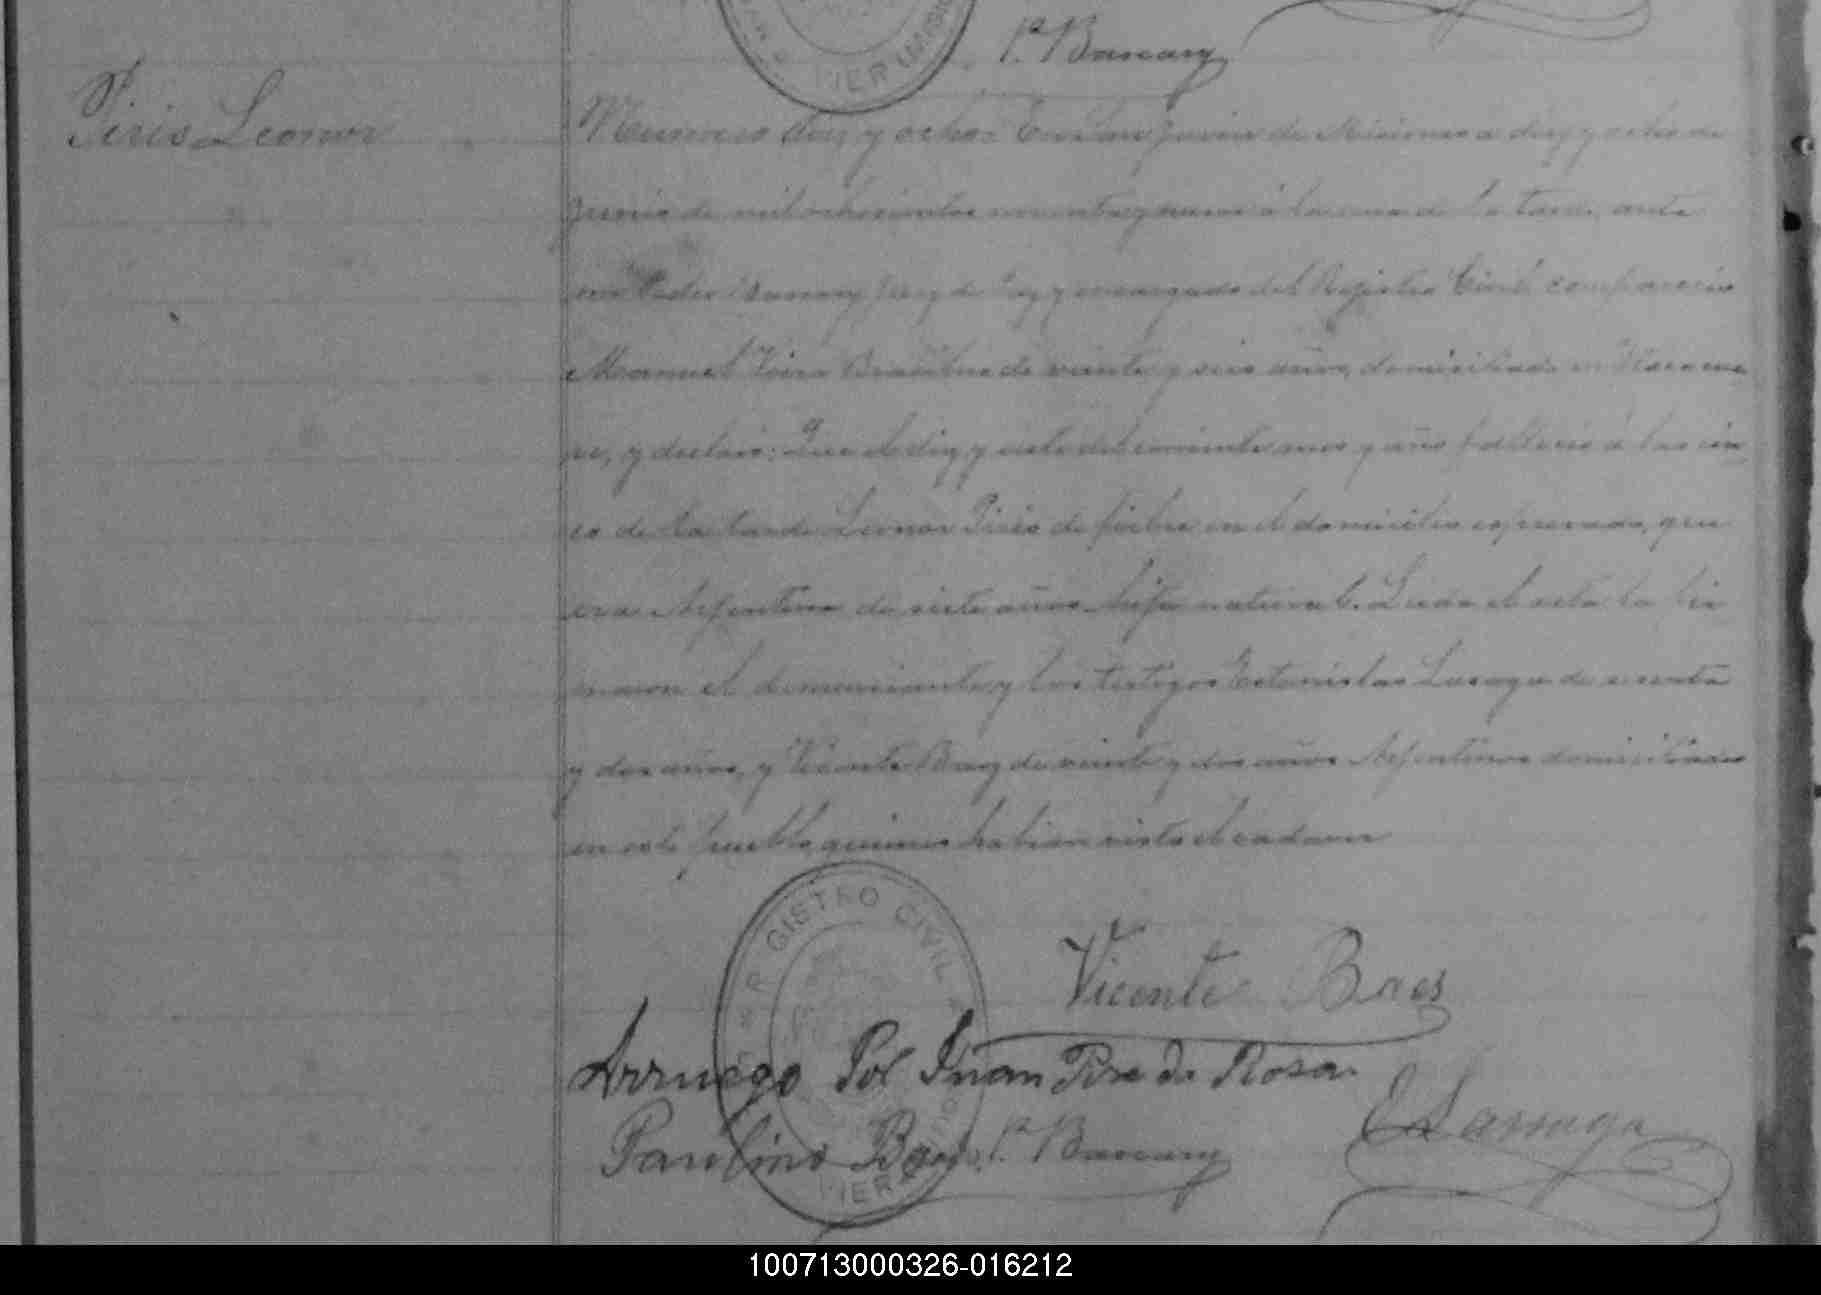 Pº Bancary
Piris Leonor
Numero diez y ocho: En San Javier de Misiones a diez y ocho de
Junio de mil ochocientos noventa y nueve á la una de la tarde, ante
mi Pedro Bancary Juez de Paz y encargado del Registro Civil, comparecio
Manuel Brasilero de veinte y seis años, domiciliado en
y declaró: Que el diez y siete del corriente mes y año fallecio á las cin
co de la tarde Leonor Piris de fiebre en el domicilio espresado, que
era Argentina de siete años hija natural. Leida el acta la fir
maron el denunciante y los testigos Estanislao de
y dos años, y Vicente Baez de veinte y dos años Argentinos domiciliados
en este pueblo, quienes habian visto el cadaver
REGISTRO CIVIL
Vicente Baes
Arruego Por Juan Pire da Rosa
E Larraga
Paulino Baez Pº Bancary
100713000326-016212